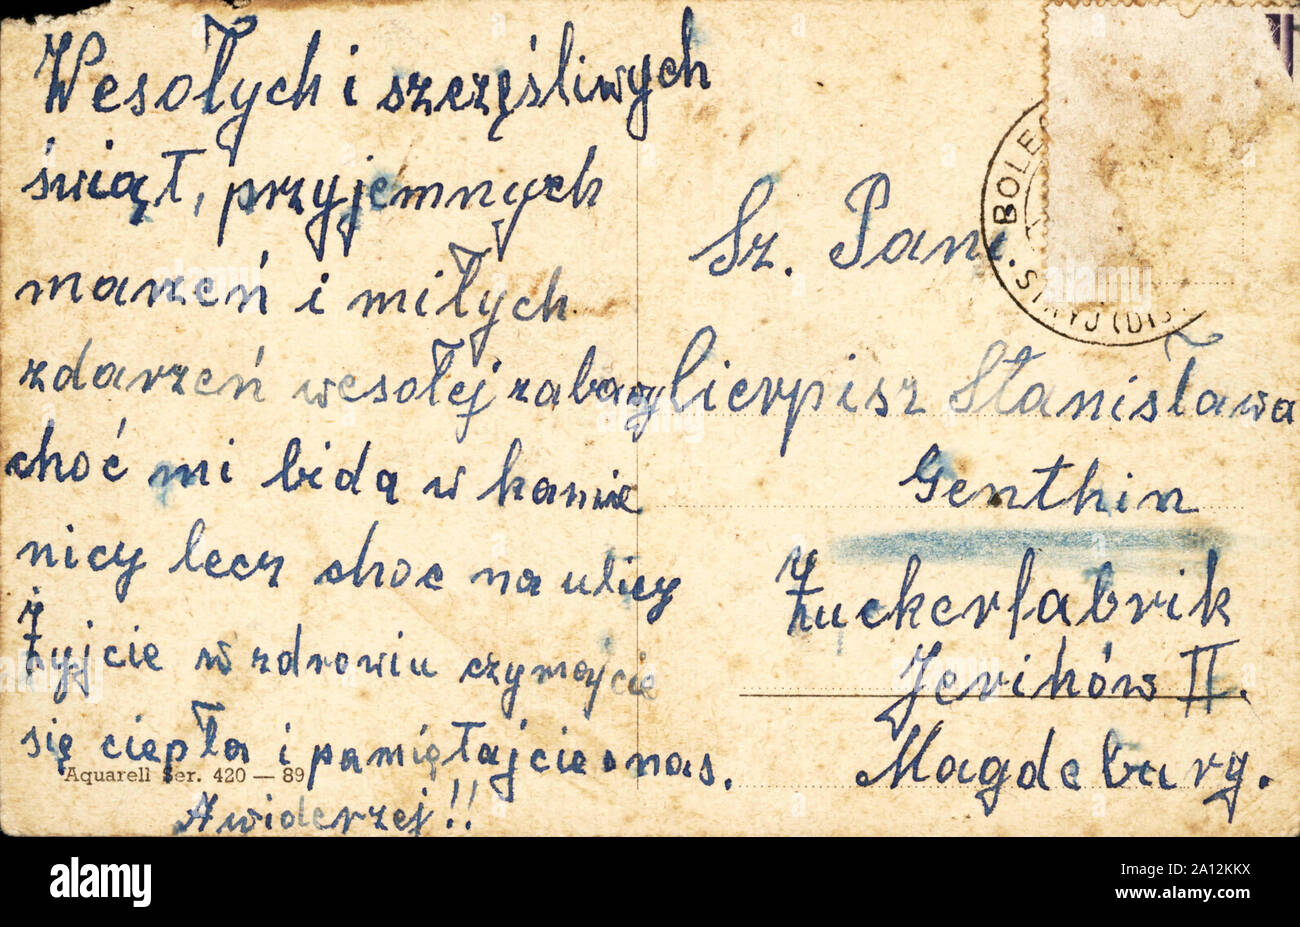 Wesołych i szczęśliwych
świąt, przyjemnych
marzeń i miłych
zdarzeń wesołej zaba
choć mi bida w kamie
nicy lecz choc na ulicy
Żyjcie w zdrowiu czymajcie
się ciepła i pamiętajcie o nas.
Awiderzej!!
Aquarell Ser. 420 — 89
BOLE
STRYJ (DIS
Sz. Pani.
Cierpisz Stanisława
Genthin
Zuckerfabrik
Jerihów II.
Magdeburg.
alamy
Image ID: 2A12KKX
www.alamy.com